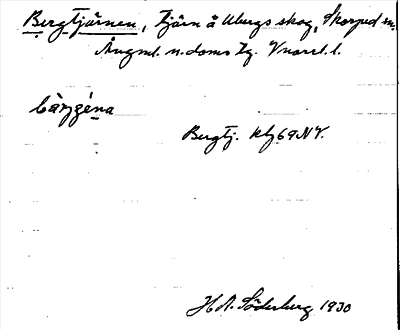 Bergtjärnen, Tjärn å Ubergs skog, Skorped sn.
Ångml. n. doms Tg. Vnorrl. l.
bàrjɟéna
Bergtj. kbl 69 NV.
H. A. Söderberg 1930